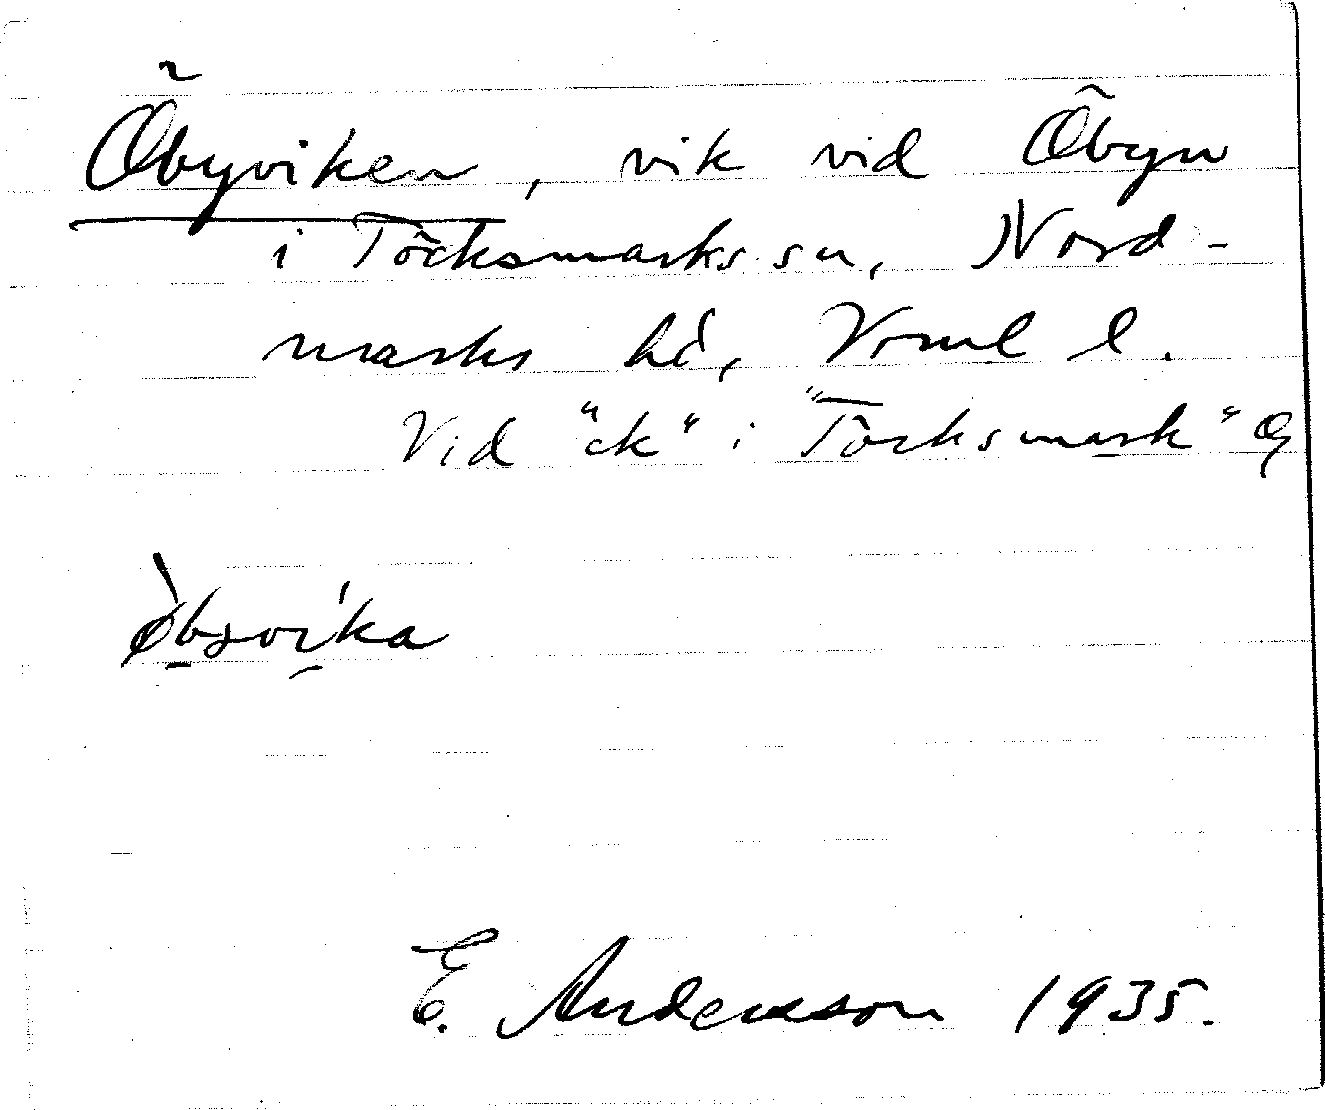 Öbyviken, vik vid Öbyn
i Töcksmarks sn, Nord-
marks hd, Vrml l.
Vid "ck" i "Töcksmark" G
E. Andersson 1935.